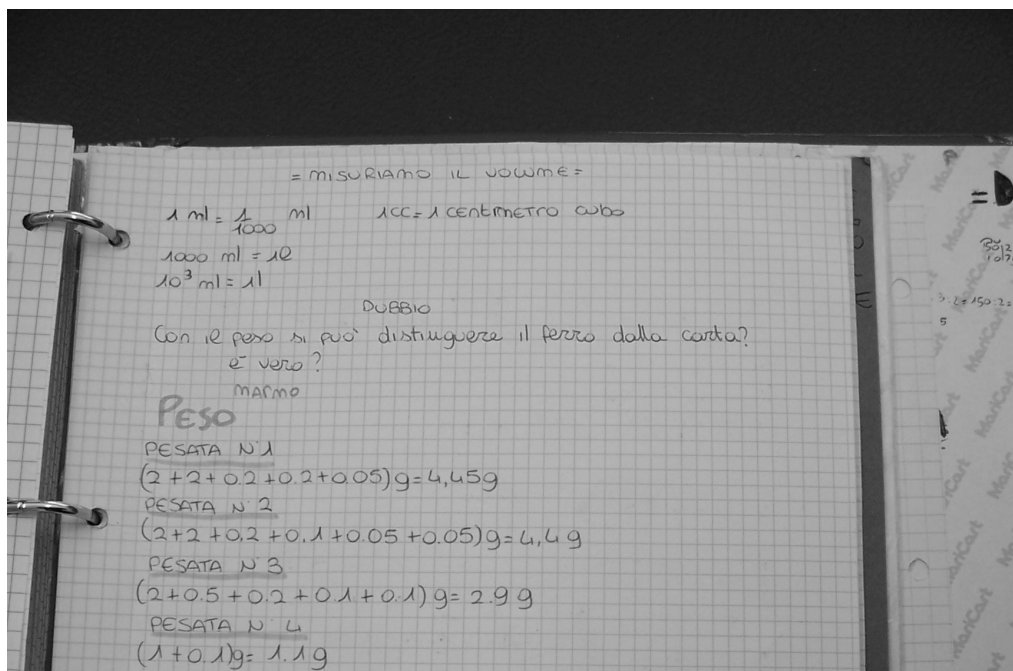 = MISURIAMO IL VOLUME =
1 ml = 1/1000 ml 1CC = 1 CENTIMETRO cubo
1000 ml = 1l
10³ ml = 1l
DUBBIO
Con il peso si può distinguere il ferro dalla carta?
è vero?
MARMO
PESO
PESATA N°1
(2+2+0.2+0.2+0.05)g=4,45g
PESATA N°2
(2+2+0,2+0,1+0.05+0.05)g=4,4g
PESATA N°3
(2+0.5+0.2+0.1+0.1)g=2.9g
PESATA N° 4
(1+0.1)g=1.1g
MariCart